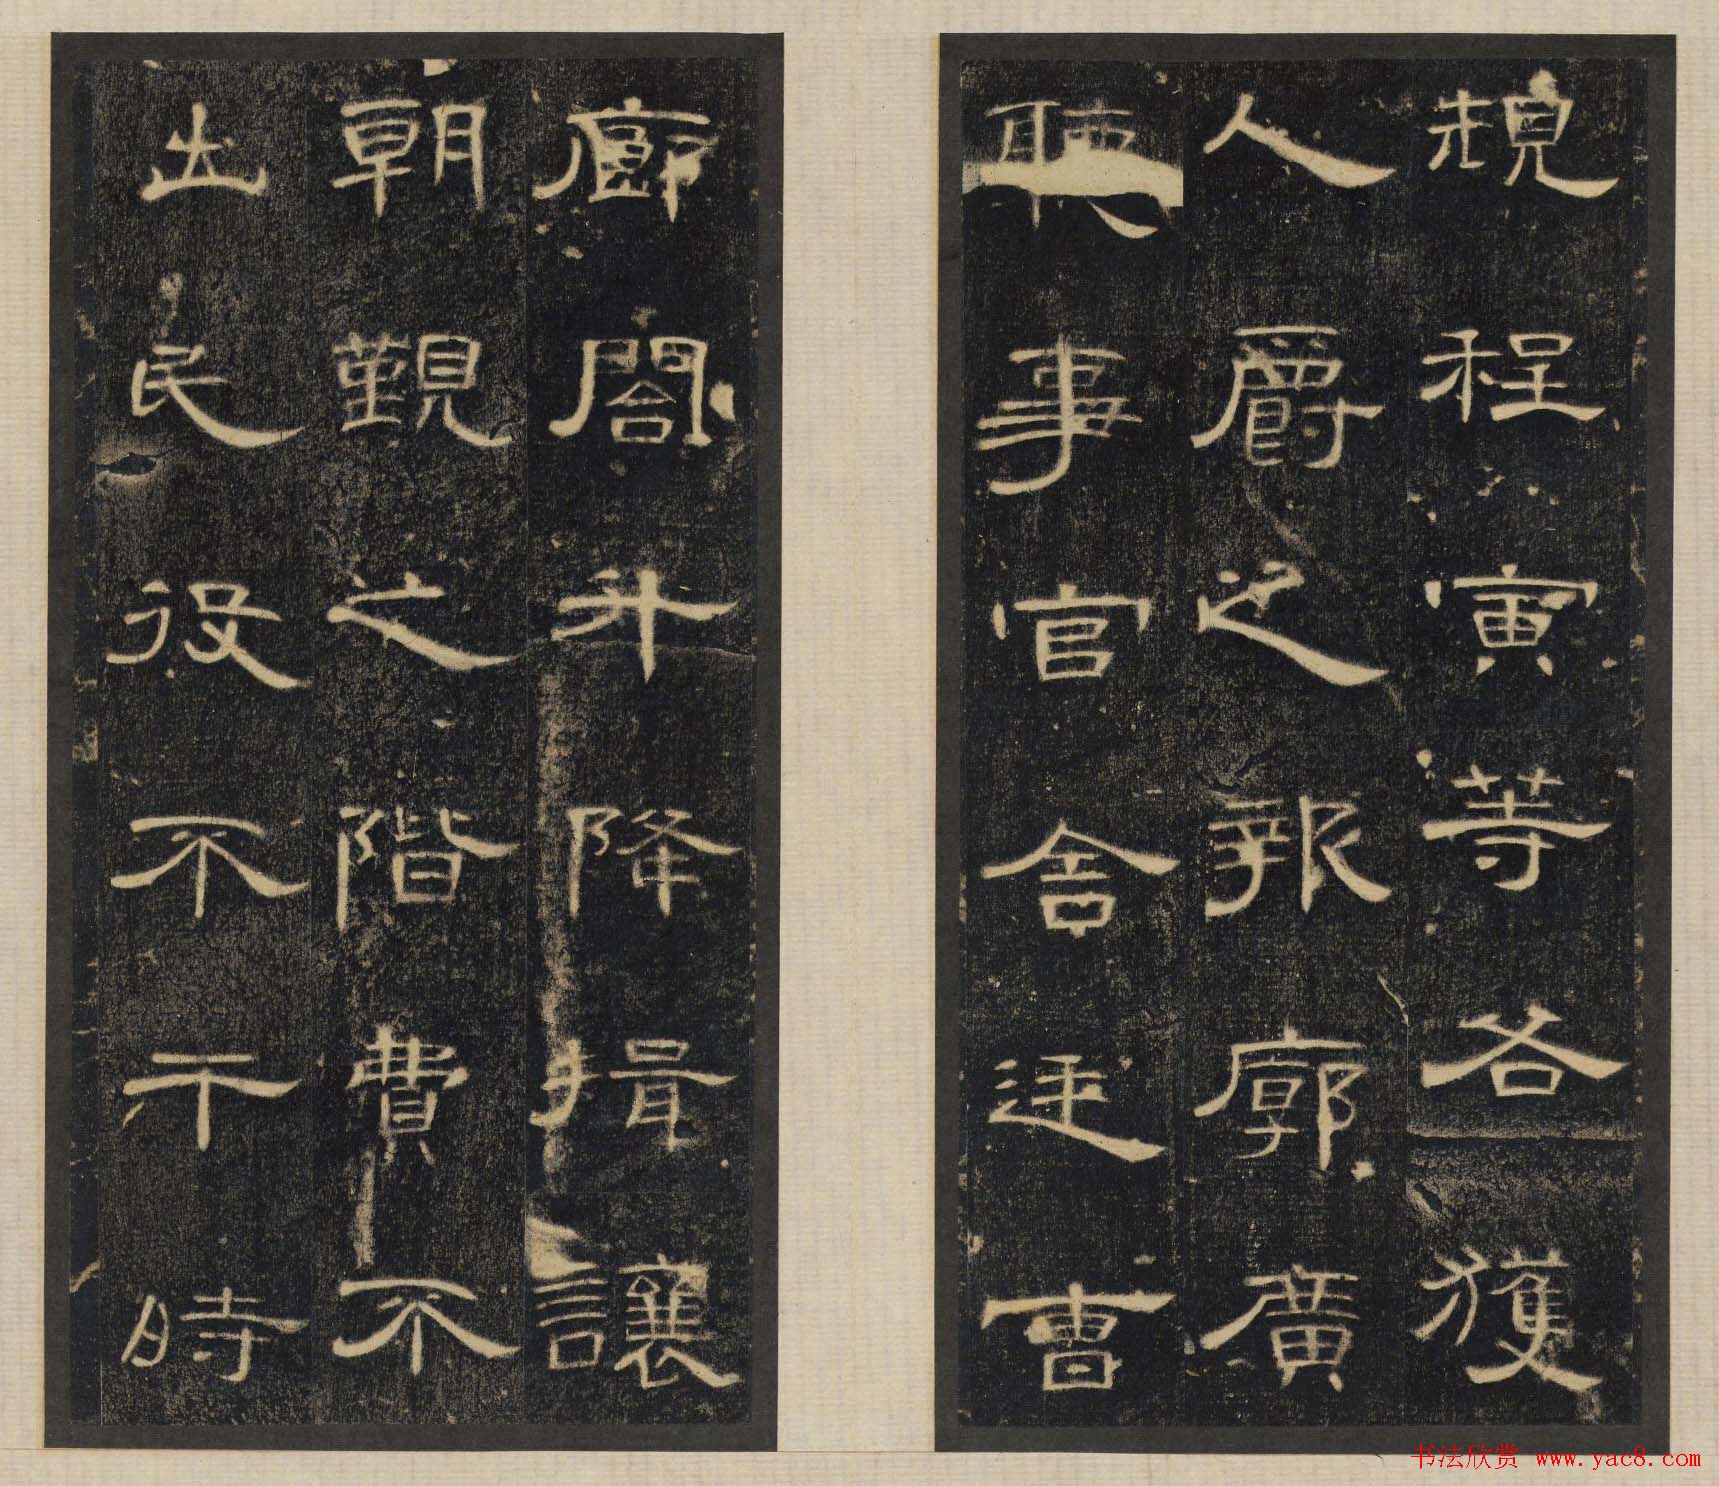 規程寅等各獲
人爵之報廓廣
聽事官舍廷曹
廊閣升降揖讓
朝覲之階費不
出民役不干時
书法欣赏 www.yac8.com